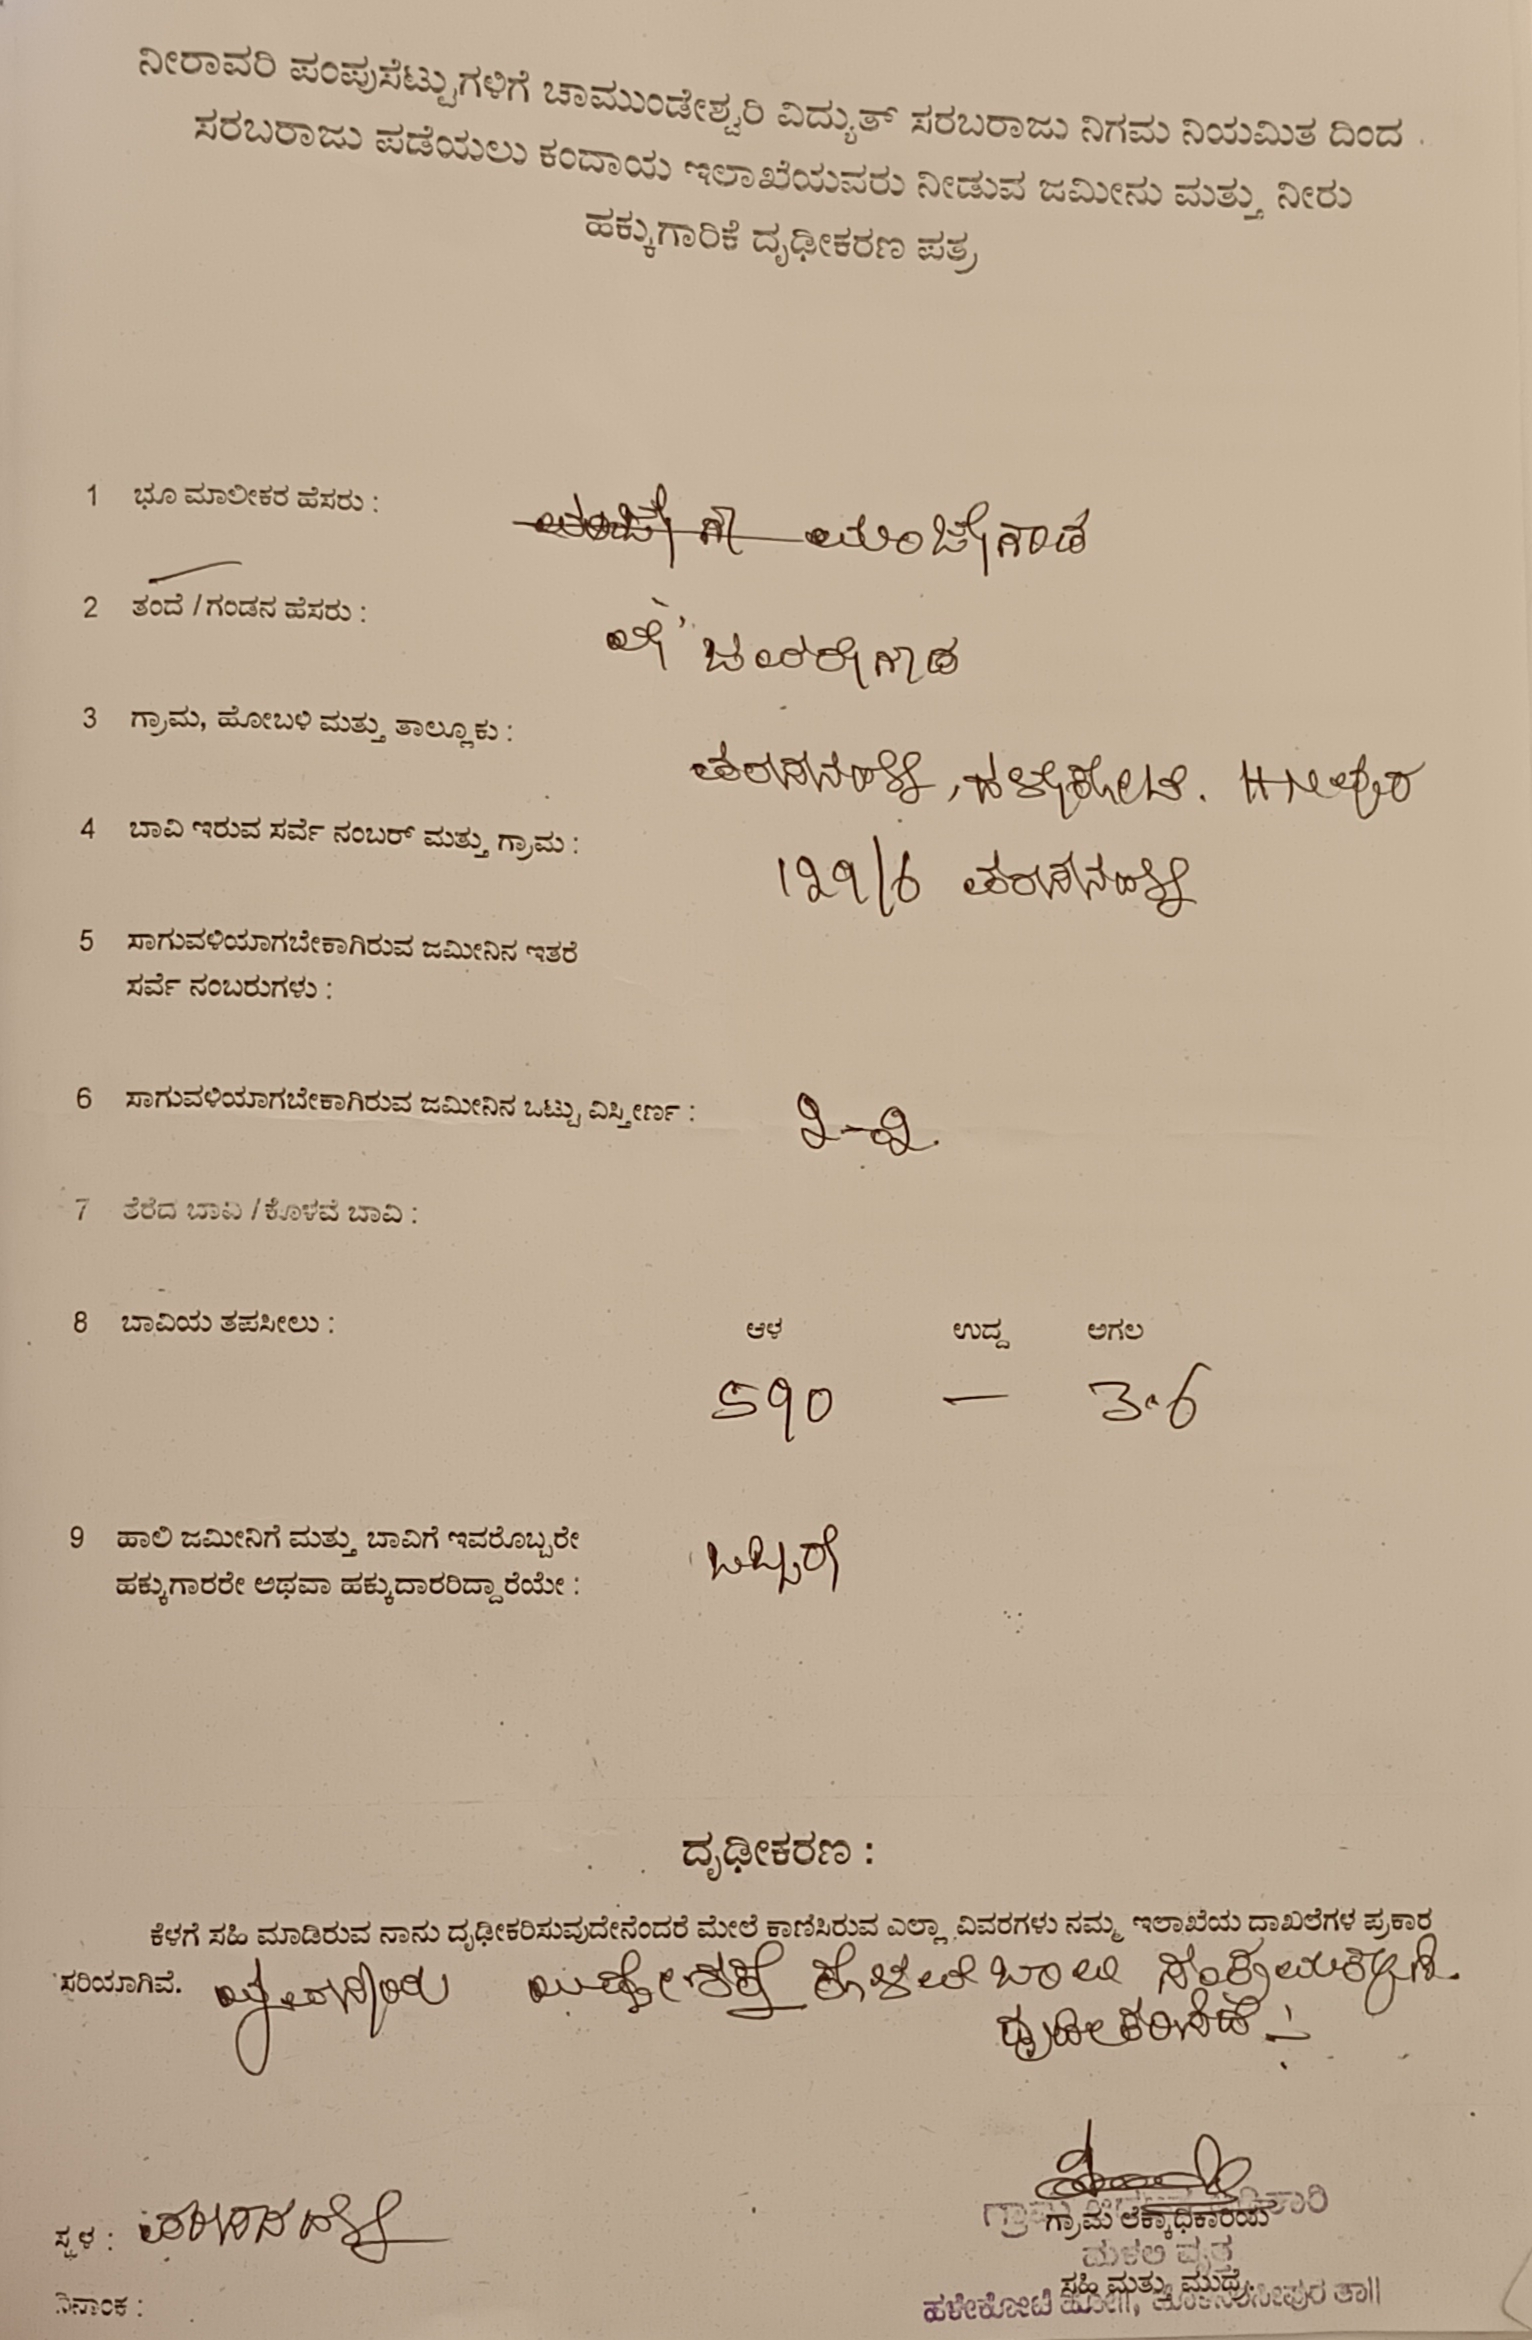 ನೀರಾವರಿ ಪಂಪುಸೆಟ್ಟುಗಳಿಗೆ ಚಾಮುಂಡೇಶ್ವರಿ ವಿದ್ಯುತ್ ಸರಬರಾಜು ನಿಗಮ ನಿಯಮಿತ ದಿಂದ
ಸರಬರಾಜು ಪಡೆಯಲು ಕಂದಾಯ ಇಲಾಖೆಯವರು ನೀಡುವ ಜಮೀನು ಮತ್ತು ನೀರು
ಹಕ್ಕುಗಾರಿಕೆ ದೃಢೀಕರಣ ಪತ್ರ
1 ಭೂ ಮಾಲೀಕರ ಹೆಸರು : ಮಂಜೇಗೌಡ
2 ತಂದೆ / ಗಂಡನ ಹೆಸರು : ಜವರೇಗೌಡ
3 ಗ್ರಾಮ, ಹೋಬಳಿ ಮತ್ತು ತಾಲ್ಲೂಕು : ಹಳೇಕೋಟೆ.
4 ಬಾವಿ ಇರುವ ಸರ್ವೆ ನಂಬರ್ ಮತ್ತು ಗ್ರಾಮ : 129/6
5 ಸಾಗುವಳಿಯಾಗಬೇಕಾಗಿರುವ ಜಮೀನಿನ ಇತರೆ
ಸರ್ವೆ ನಂಬರುಗಳು :
6 ಸಾಗುವಳಿಯಾಗಬೇಕಾಗಿರುವ ಜಮೀನಿನ ಒಟ್ಟು ವಿಸ್ತೀರ್ಣ :
7 ತೆರೆದ ಬಾವಿ / ಕೊಳವೆ ಬಾವಿ :
8 ಬಾವಿಯ ತಪಸೀಲು : ಆಳ ಉದ್ದ ಅಗಲ
590 — 3.6
9 ಹಾಲಿ ಜಮೀನಿಗೆ ಮತ್ತು ಬಾವಿಗೆ ಇವರೊಬ್ಬರೇ ಒಬ್ಬರೇ
ಹಕ್ಕುಗಾರರೇ ಅಥವಾ ಹಕ್ಕುದಾರರಿದ್ದಾರೆಯೇ :
ದೃಢೀಕರಣ :
ಕೆಳಗೆ ಸಹಿ ಮಾಡಿರುವ ನಾನು ದೃಢೀಕರಿಸುವುದೇನೆಂದರೆ ಮೇಲೆ ಕಾಣಿಸಿರುವ ಎಲ್ಲಾ ವಿವರಗಳು ನಮ್ಮ ಇಲಾಖೆಯ ದಾಖಲೆಗಳ ಪ್ರಕಾರ
ಸರಿಯಾಗಿವೆ. ವ್ಯವಸಾಯ ಉದ್ದೇಶಕ್ಕೆ ಕೊಳವೆ ಬಾವಿ
ದೃಢೀಕರಿಸಿದೆ
ಸ್ಥಳ :
ಗ್ರಾಮ ಲೆಕ್ಕಾಧಿಕಾರಿಯ
ಮಳಲಿ ವೃತ್ತ
ಸಹಿ ಮತ್ತು ಮುದ್ರೆ.
ದಿನಾಂಕ :
ಹಳೇಕೋಟೆ ಹೋ||, ಹೊಳೆನರಸೀಪುರ ತಾ||